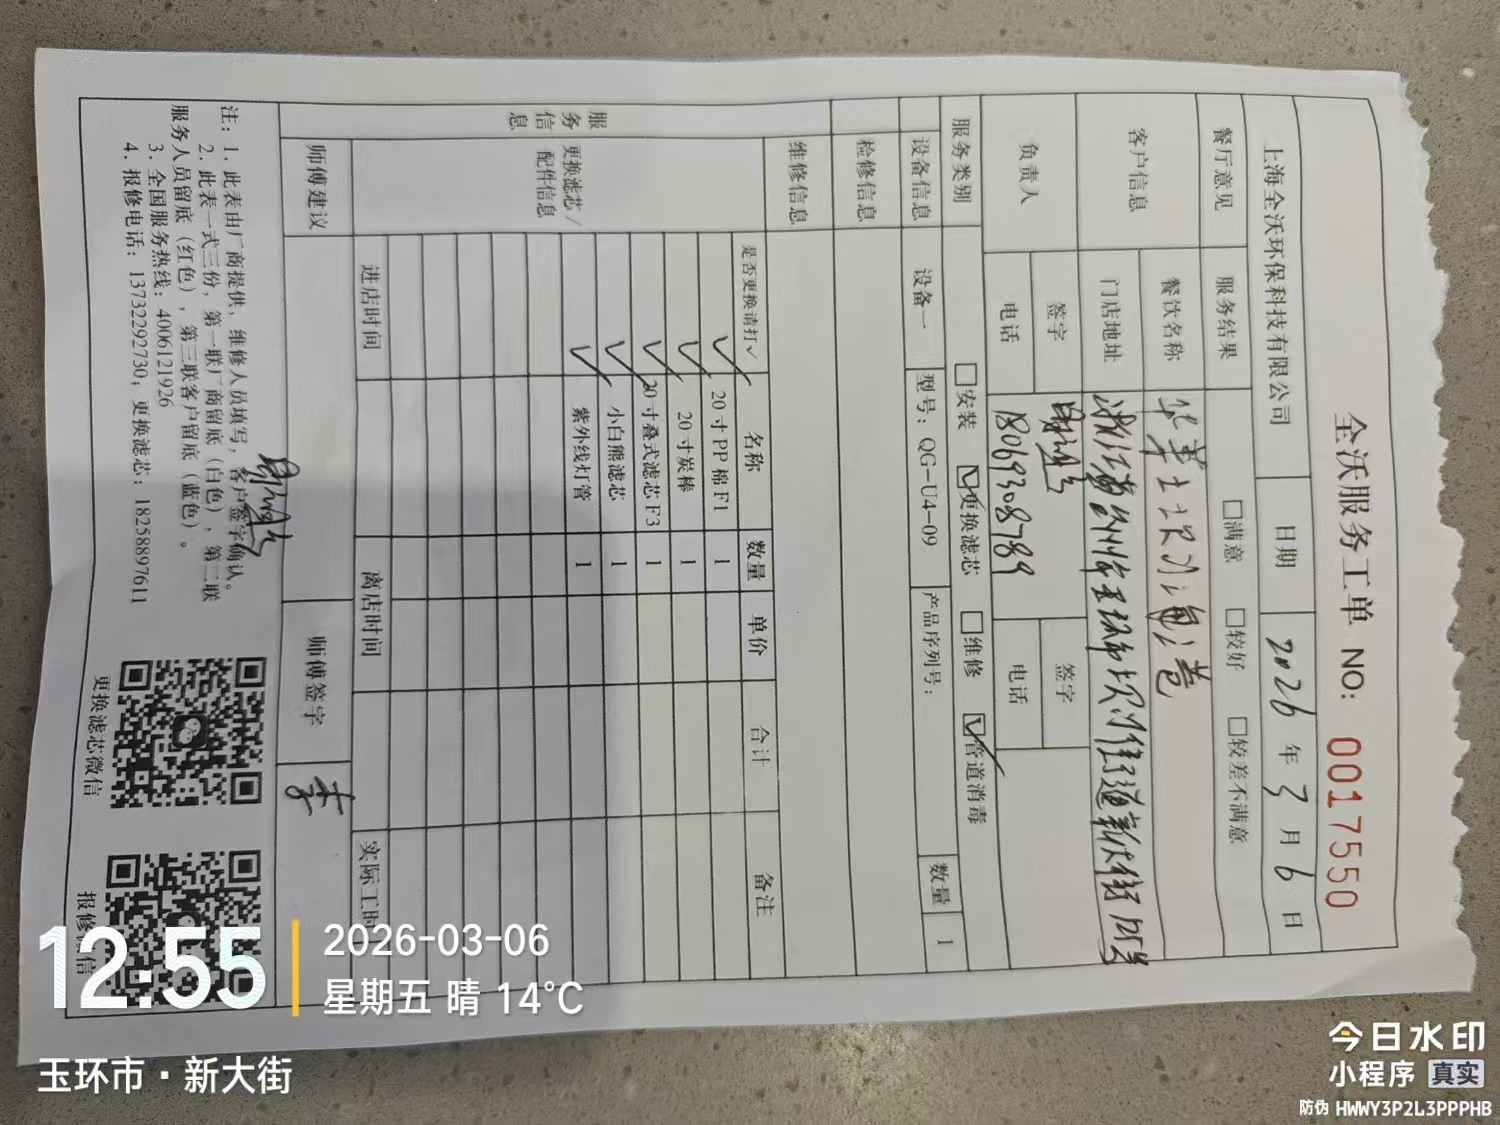 全沃服务工单 NO: 0017550
上海全沃环保科技有限公司 日期 2026 年 3 月 6 日
餐厅意见 服务结果 □满意 □较好 □较差不满意
客户信息 餐饮名称 华莱士
门店地址 浙江省 新大街125号
负责人 签字 签字
电话 18069308789 电话
服务类别 □安装 ☑更换滤芯 □维修 ☑管道消毒
设备信息 设备一 型号：QG-U4-09 产品序列号： 数量 1
检修信息
维修信息
服务信息
更换滤芯/配件信息
是否更换请打✓ 名称 数量 单价 合计 备注
✓ 20寸PP棉F1 1
✓ 20寸炭棒 1
✓ 20寸叠式滤芯F3 1
✓ 小白熊滤芯 1
✓ 紫外线灯管 1
进店时间 离店时间 实际工时
师傅建议 师傅签字 李
注：1. 此表由厂商提供，维修人员填写，客户签字确认。
2. 此表一式三份，第一联厂商留底（白色），第二联
服务人员留底（红色），第三联客户留底（蓝色）。
3. 全国服务热线：4006121926
4. 报修电话：13732292730，更换滤芯：18258897611
更换滤芯微信
报修微信
12:55
2026-03-06
星期五 晴 14°C
玉环市·新大街
今日水印
小程序 真实
防伪 HWWY3P2L3PPPHB